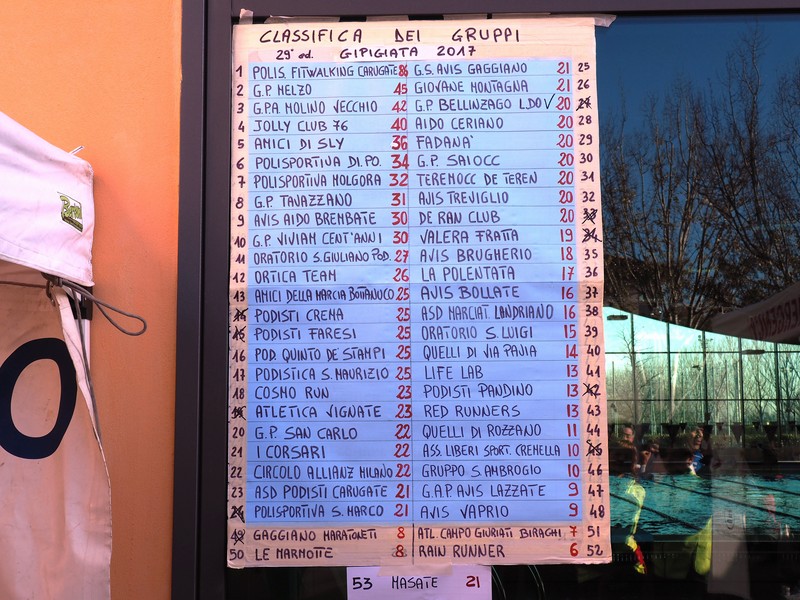 CLASSIFICA DEI GRUPPI
29ª ed. GIPIGIATA 2017
1 POLIS. FITWALKING CARUGATE 86 G.S. AVIS GAGGIANO 21 25
2 G.P. MELZO 45 GIOVANE MONTAGNA 21 26
3 G.P.A MOLINO VECCHIO 42 G.P. BELLINZAGO L.DO ✓ 20 27
4 JOLLY CLUB 76 40 AIDO CERIANO 20 28
5 AMICI DI SLY 36 FADANA' 20 29
6 POLISPORTIVA DI.PO. 34 G.P. SAIOCC 20 30
7 POLISPORTIVA MOLGORA 32 TEREMOCC DE TEREN 20 31
8 G.P TAVAZZANO 31 AVIS TREVIGLIO 20 32
9 AVIS AIDO BREMBATE 30 DE RAN CLUB 20 33
10 G.P. VIVIAM CENT'ANNI 30 VALERA FRATTA 19 34
11 ORATORIO S.GIULIANO POD. 27 AVIS BRUGHERIO 18 35
12 ORTICA TEAM 26 LA POLENTATA 17 36
13 AMICI DELLA MARCIA BOTTANUCO 25 AVIS BOLLATE 16 37
14 PODISTI CREMA 25 ASD MARCIAT. LANDRIANO 16 38
15 PODISTI FARESI 25 ORATORIO S. LUIGI 15 39
16 POD. QUINTO DE STAMPI 25 QUELLI DI VIA PAVIA 14 40
17 PODISTICA S. MAURIZIO 25 LIFE LAB 13 41
18 COSMO RUN 23 PODISTI PANDINO 13 42
19 ATLETICA VIGNATE 23 RED RUNNERS 13 43
20 G.P. SAN CARLO 22 QUELLI DI ROZZANO 11 44
21 I CORSARI 22 ASS. LIBERI SPORT. CREMELLA 10 45
22 CIRCOLO ALLIANZ MILANO 22 GRUPPO S. AMBROGIO 10 46
23 ASD PODISTI CARUGATE 21 G.A.P. AVIS LAZZATE 9 47
24 POLISPORTIVA S. MARCO 21 AVIS VAPRIO 9 48
49 GAGGIANO MARATONETI 8 ATL. CAMPO GIURIATI BIRAGHI 7 51
50 LE MARMOTTE 8 RAIN RUNNER 6 52
53 MASATE 21